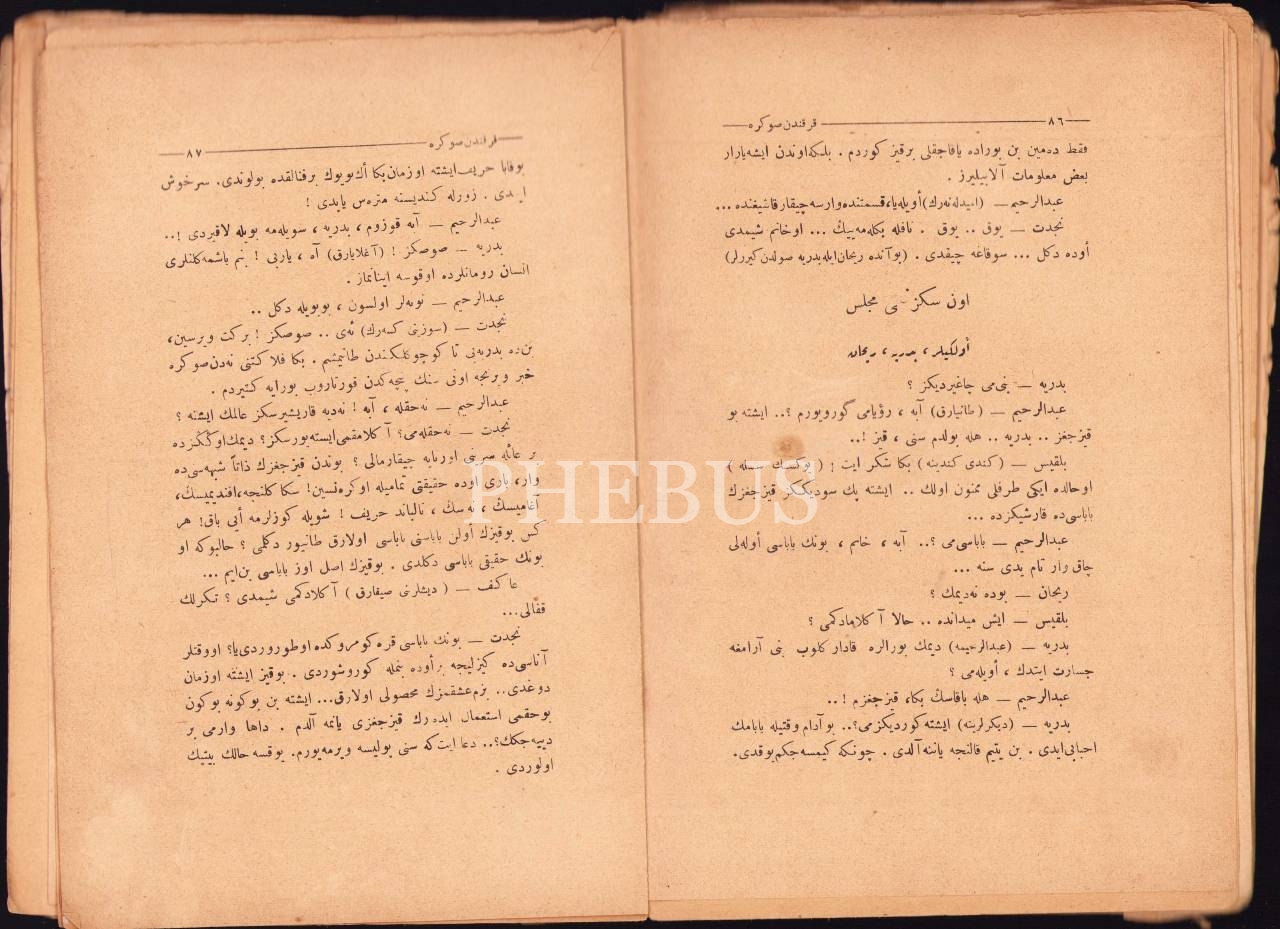 ٨٦ — قرقندن صوكره
فقط ده‌مین بن بوراده یافاجقلی برقیز كوردم . بلكه اوندن ایشه‌یارار
بعض معلومات آلابیلیرز .
عبدالرحیم — (امیدله‌نه‌رك) أویله‌یا، قسمتنده وارسه چیقار قاشیغنده ...
نجدت — یوق .. یوق . نافله بكله‌مه‌ییڭ ... اوخانم شیمدی
أوده دكل ... سوقاغه چیقدی . (بوآنده ریحان ایله بدریه صولدن كیررلر)
اون سكزنجی مجلس
أولكیلر ، بدریه ، ریحان
بدریه — بنی‌می چاغیردیكز ؟
عبدالرحیم — (طانیارق) آبه ، رؤیامی گورویورم ؟.. ایشته بو
قیزجغز .. بدریه .. هله بولدم سنی ، قیز !..
بلقیس — (كندی كندینه) بكا شكر ایت ! (یوكسك سسله)
اوحالده ایكی طرفلی ممنون اولك .. ایشته پك سودیككز قیزجغزك
باباسی‌ده قارشیكزده ...
عبدالرحیم — باباسی‌می ؟.. آبه ، خانم ، بونك باباسی أوله‌لی
چاق وار تام یدی سنه ...
ریحان — بوده نه‌دیمك ؟
بلقیس — ایش میدانده .. حالا آكلامادكمی ؟
بدریه — (عبدالرحیمه) دیمك بورالره قادار كلوب بنی آرامغه
جسارت ایتدك ، أویله‌می ؟
عبدالرحیم — هله باقاسڭ بكا، قیزجغزم !..
بدریه — (دیكرلرینه) ایشته كوردیكزمی؟.. بو آدام وقتیله بابامك
احبابی‌ایدی . بن یتیم قالنجه یاننه آلدی . چونكه كیمسه‌جكم یوقدی.
قرقندن صوكره — ٨٧
بوقابا حریف ایشته اوزمان بكا أك بویوك برفنالقده بولوندی. سرخوش
ایدی . زورله كندیسنه متره‌س یاپدی !
عبدالرحیم — آبه قوزوم ، بدریه ، سویله‌مه بویله لاقیردی !..
بدریه — صوصكز ! (آغلایارق) آه ، یاربی ! بنم باشمه كلنلری
انسان رومانلرده اوقوسه اینانماز .
عبدالرحیم — نوبه‌لر اولسون ، بوبویله دكل ..
نجدت — (سوزینی كسه‌رك) ئه‌ی .. صوصكز ! بركت ویرسین،
بن‌ده بدریه‌یی تا كوچوكلكندن طانیمشم . بكا فلاكتنی نه‌دن صوكره
خبر ویرنجه اونی سنك پنچه‌كدن قورتاروب بورایه كتیردم .
عبدالرحیم — نه‌حقله ، آبه ! نه‌دیه قاریشیرسكز عالمك ایشنه ؟
نجدت — نه‌حقله‌می؟ آكلامقمی ایسته‌یورسكز؟ دیمك اوڭكزده
بر عائله سرینی اورتایه چیقارمالی ؟ بوندن قیزجغزك ذاتاً شبهه‌سی‌ده
وار، باری اوده حقیقتی تمامیله اوكره‌نسین! سكا كلنجه، افندیمیسڭ،
آغامیسڭ ، نه‌سڭ ، نالباند حریف ! شویله كوزلرمه أیی باق! هر
كس بوقیزك أولن باباسنی باباسی اولارق طانیور دكلمی ؟ حالبوكه او
بونك حقیقی باباسی دكلدی . بوقیزك اصل اوز باباسی بن‌ایم ...
عاكف — (دیشلرینی صیقارق) آكلادكمی شیمدی ؟ تكرلك
قفالی...
نجدت — بونك باباسی قره كومروكده اوطوروردی‌یا؟ اووقتلر
آناسی‌ده كیزلیجه برأوده بنمله كوروشوردی . بوقیز ایشته اوزمان
دوغدی.. بزم عشقمزك محصولی اولارق... ایشته بن بوكونه بوكون
بوحقمی استعمال ایده‌رك قیزجغزی یانمه آلدم . داها وارمی بر
دییه‌جكڭ؟.. دعا ایت‌كه سنی پولیسه ویرمه‌یورم. یوقسه حالك بیتیك
اولوردی .
PHEBUS